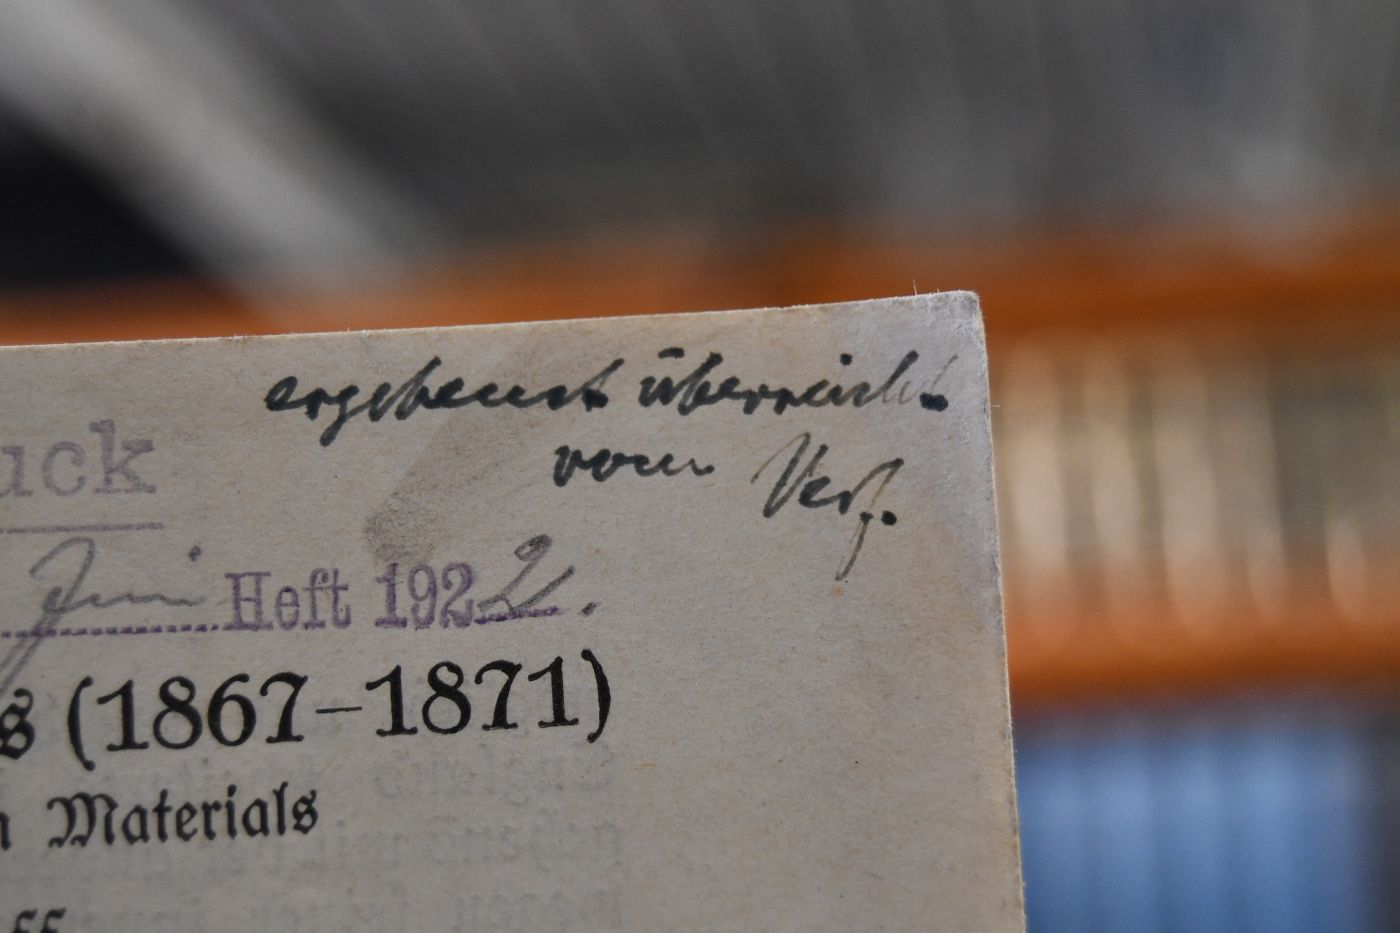 ergebenst überreicht
vom Verf.
uck
Juni Heft 1922.
s (1867–1871)
n Materials
ff